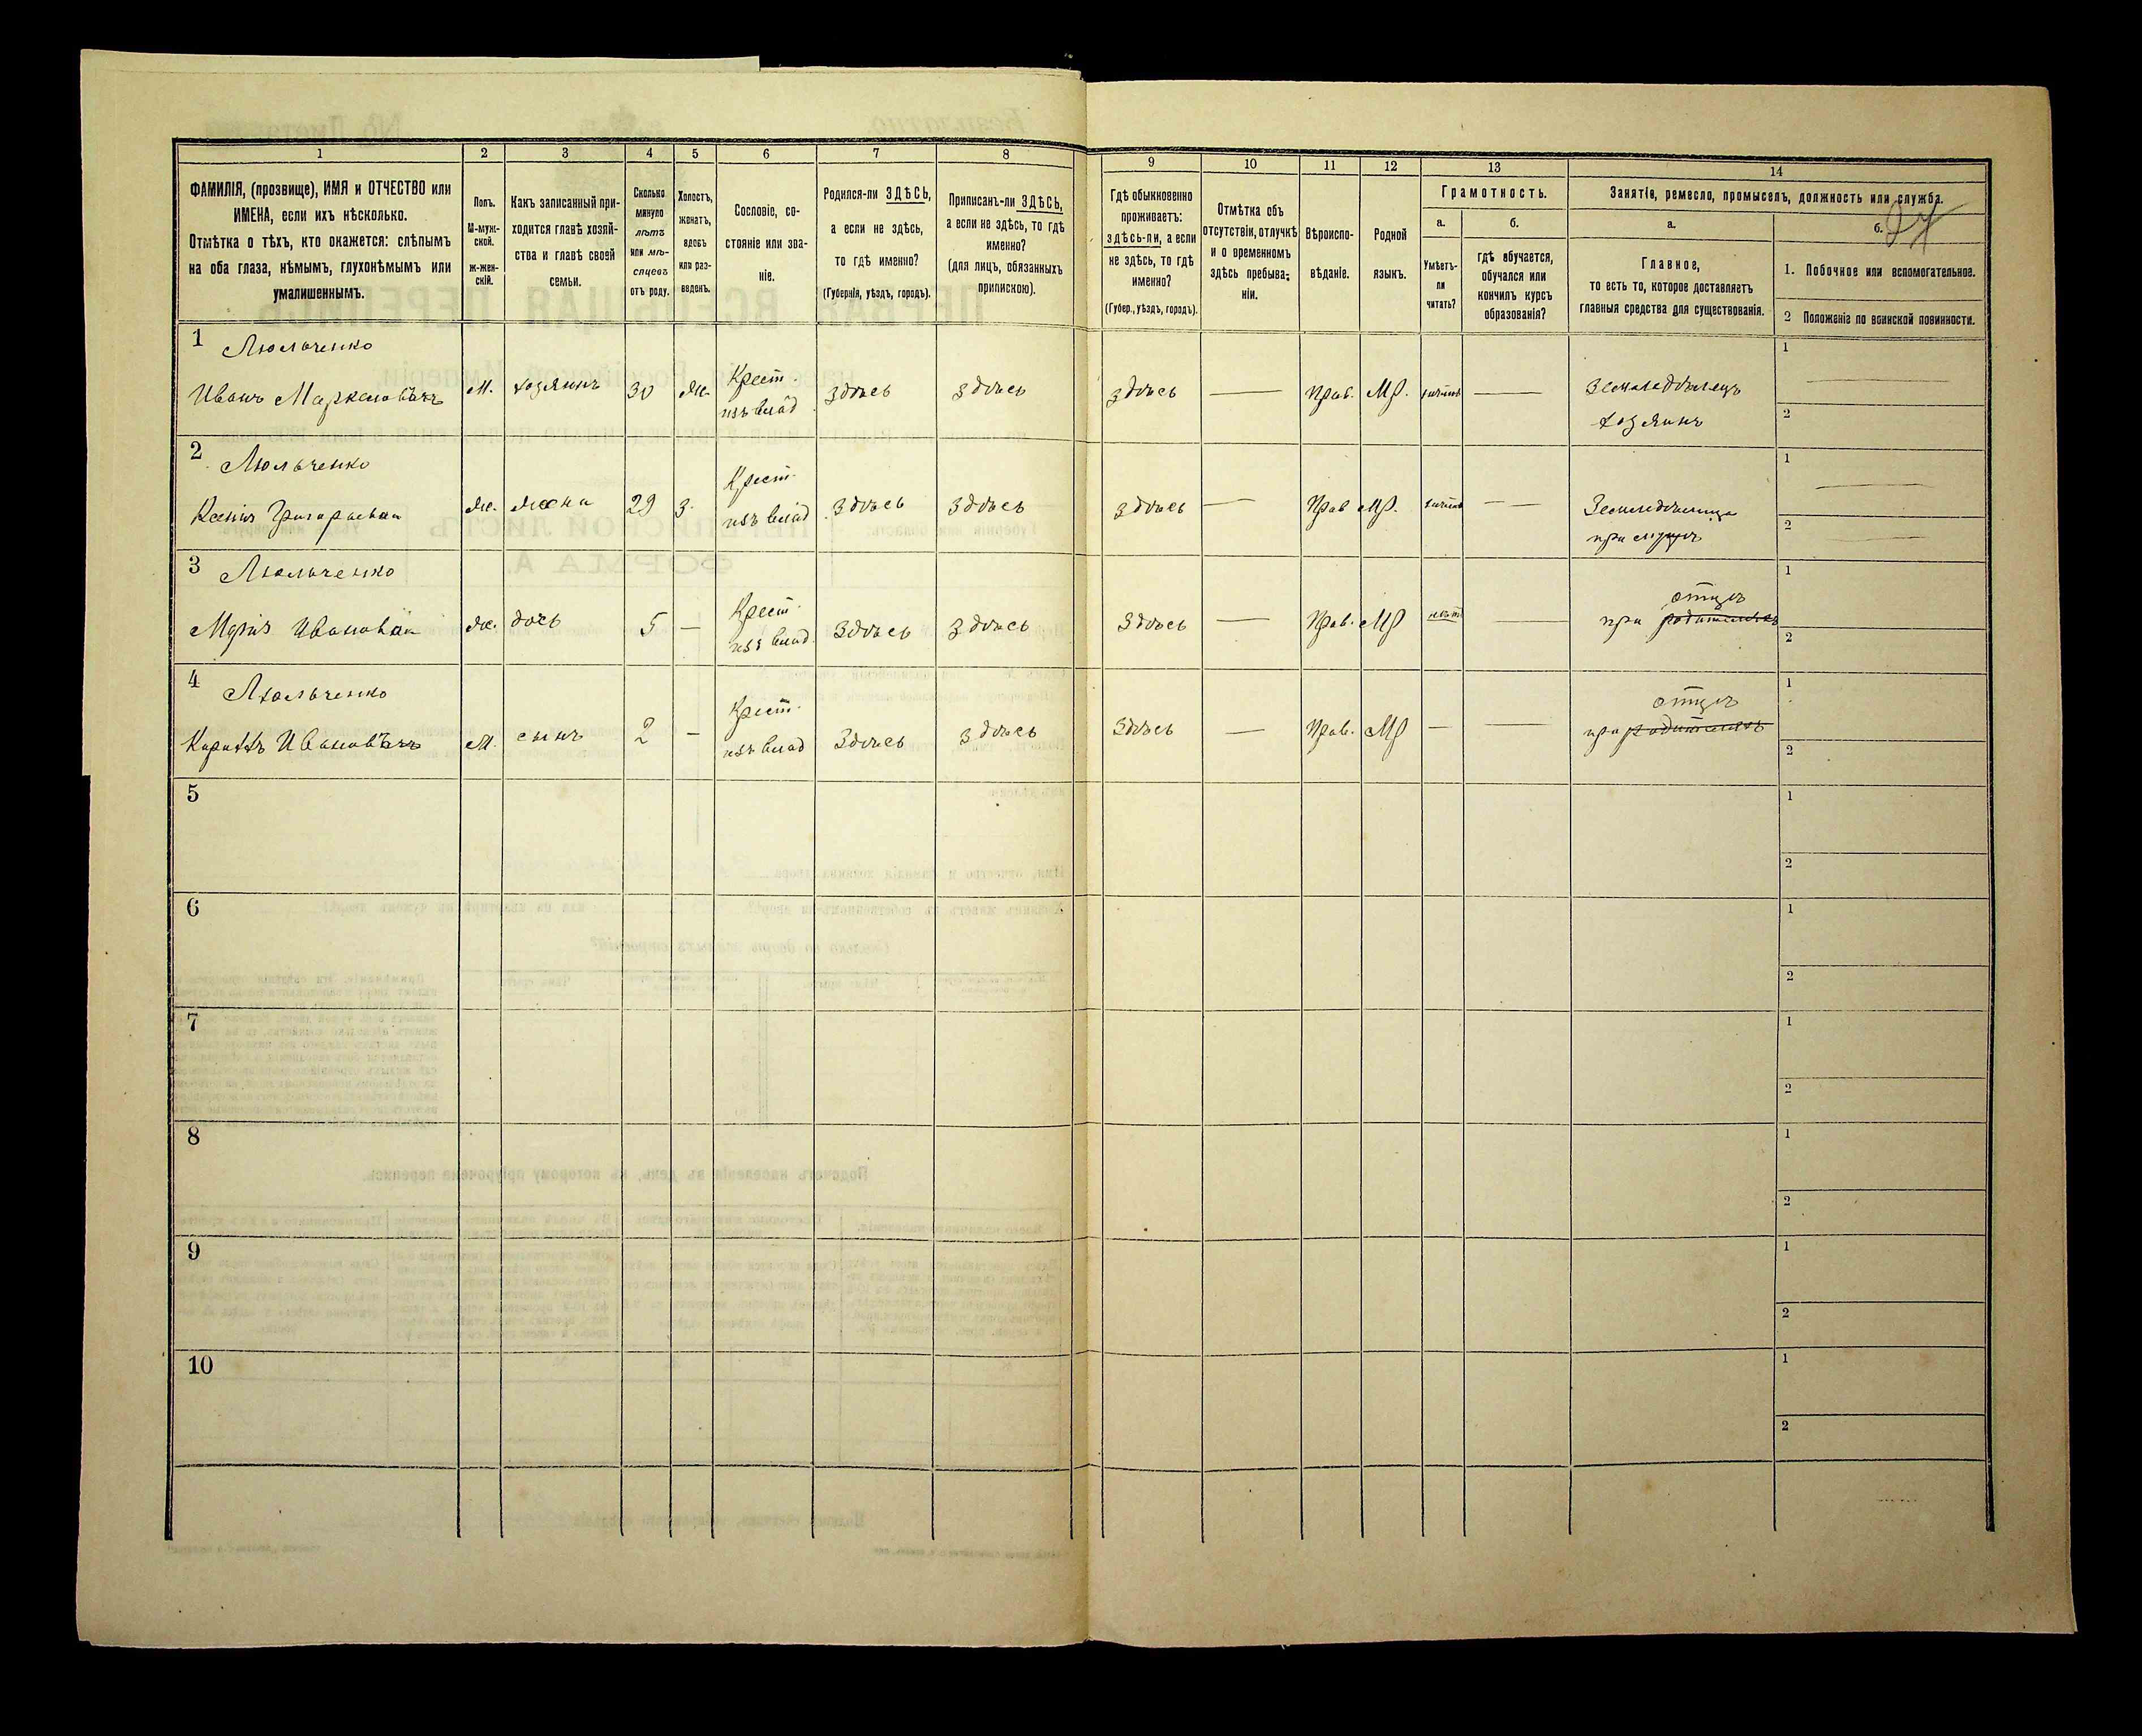 1
2
3
4
5
6
7
8
9
10
11
12
13
14
ФАМИЛІЯ, (прозвище), ИМЯ и ОТЧЕСТВО или
ИМЕНА, если ихъ нѣсколько.
Отмѣтка о тѣхъ, кто окажется: слѣпымъ
на оба глаза, нѣмымъ, глухонѣмымъ или
умалишеннымъ.
Полъ.
М-муж-
ской.
ж-жен-
скій.
Какъ записанный при-
ходится главѣ хозяй-
ства и главѣ своей
семьи.
Сколько
минуло
лѣтъ
или мѣ-
сяцевъ
отъ роду.
Холостъ,
женатъ,
вдовъ
или раз-
веденъ.
Сословіе, со-
стояніе или зва-
ніе.
Родился-ли ЗДѢСЬ,
а если не здѣсь,
то гдѣ именно?
(Губернія, уѣздъ, городъ).
Приписанъ-ли ЗДѢСЬ,
а если не здѣсь, то гдѣ
именно?
(для лицъ, обязанныхъ
припискою).
Гдѣ обыкновенно
проживаетъ:
здѣсь-ли, а если
не здѣсь, то гдѣ
именно?
(Губер., уѣздъ, городъ).
Отмѣтка объ
отсутствіи, отлучкѣ
и о временномъ
здѣсь пребыва-
ніи.
Вѣроиспо-
вѣданіе.
Родной
языкъ.
Грамотность.
а.
Умѣетъ-
ли
читать?
б.
гдѣ обучается,
обучался или
кончилъ курсъ
образованія?
Занятіе, ремесло, промыселъ, должность или служба.
а.
Главное,
то есть то, которое доставляетъ
главныя средства для существованія.
б.
1. Побочное или вспомогательное.
2 Положеніе по воинской повинности.
1 Люльченко
Иванъ М. хозяинъ 30 Ж. Крест. изъ влад. здѣсь здѣсь здѣсь — Прав. МР. — Земледѣлецъ
хозяинъ
1
2
2 Люльченко
Ксенія Григорьевна Ж. жена 29 З. Крест. изъ влад здѣсь здѣсь здѣсь — Прав МР. — — Земледѣлица
при мужѣ
1
2
3 Люльченко
Марія Ивановна Ж. дочь 5 — Крест. изъ влад. здѣсь здѣсь здѣсь — Прав. МР нѣтъ — при родителяхъ
отцѣ
1
2
4 Люльченко
Ивановичъ М. сынъ 2 — Крест. изъ влад здѣсь здѣсь здѣсь — Прав. МР — — при родителяхъ
отцѣ
1
2
5
1
2
6
1
2
7
1
2
8
1
2
9
1
2
10
1
2